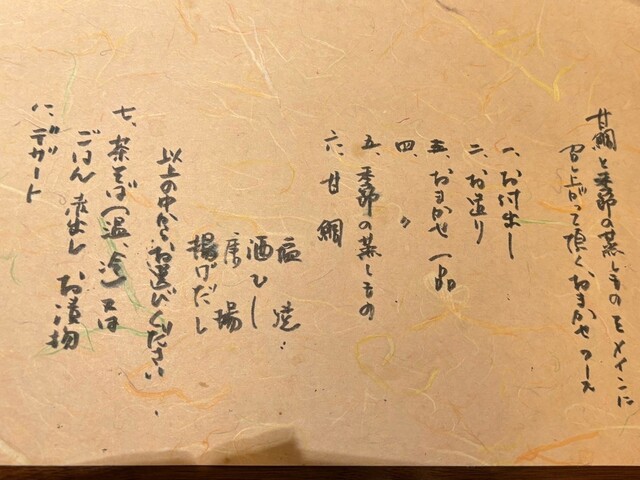 甘鯛と季節の蒸しものをメインに
召し上がって頂く、おまかせコース
一、お付出し
二、お造り
三、おまかせ一品
四、〃
五、季節の蒸しもの
六、甘鯛
塩焼
酒むし
唐揚
揚げだし
以上の中からお選びください。
七、茶そば(温、冷)又は
ごはん 赤出し お漬物
八、デザート